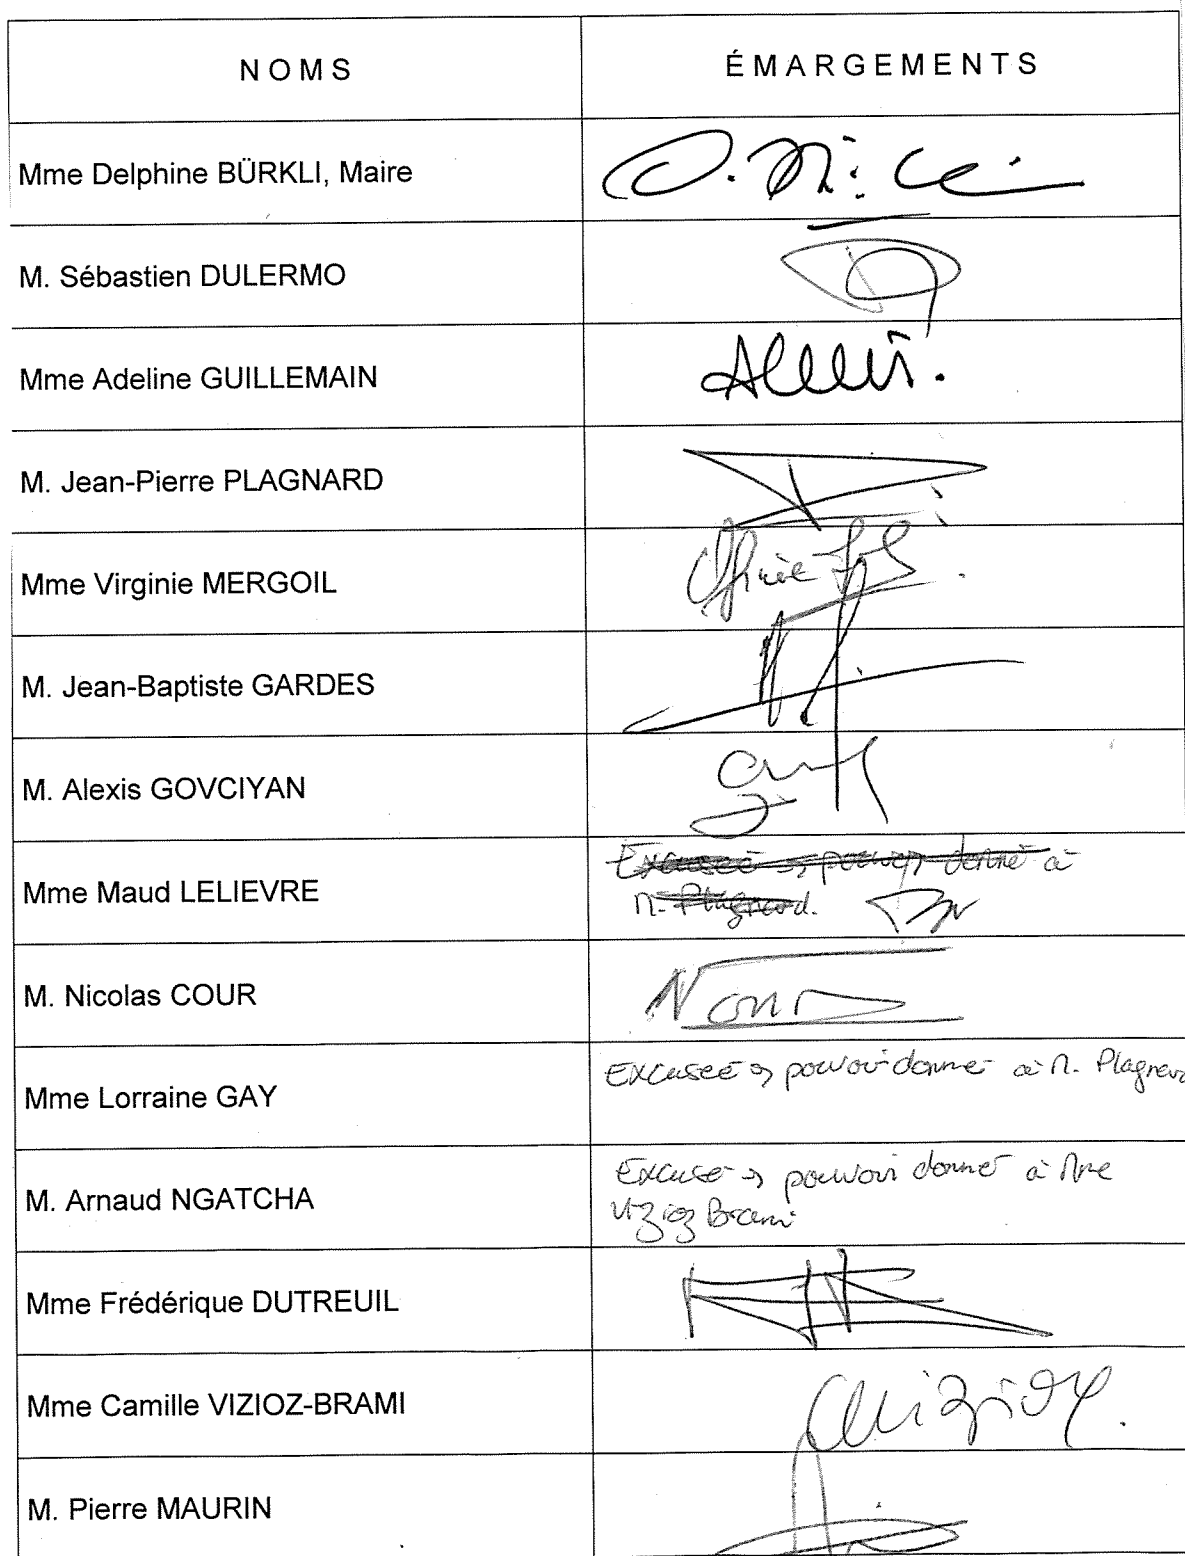 NOMS ÉMARGEMENTS
Mme Delphine BÜRKLI, Maire
M. Sébastien DULERMO
Mme Adeline GUILLEMAIN
M. Jean-Pierre PLAGNARD
Mme Virginie MERGOIL
M. Jean-Baptiste GARDES
M. Alexis GOVCIYAN
Mme Maud LELIEVRE Excusée → pouvoir donné à
M. Plagnard.
M. Nicolas COUR N Cour
Mme Lorraine GAY Excusée → pouvoir donner à M. Plagnard
M. Arnaud NGATCHA Excusé → pouvoir donner à Mme
Vizioz Brami
Mme Frédérique DUTREUIL
Mme Camille VIZIOZ-BRAMI
M. Pierre MAURIN